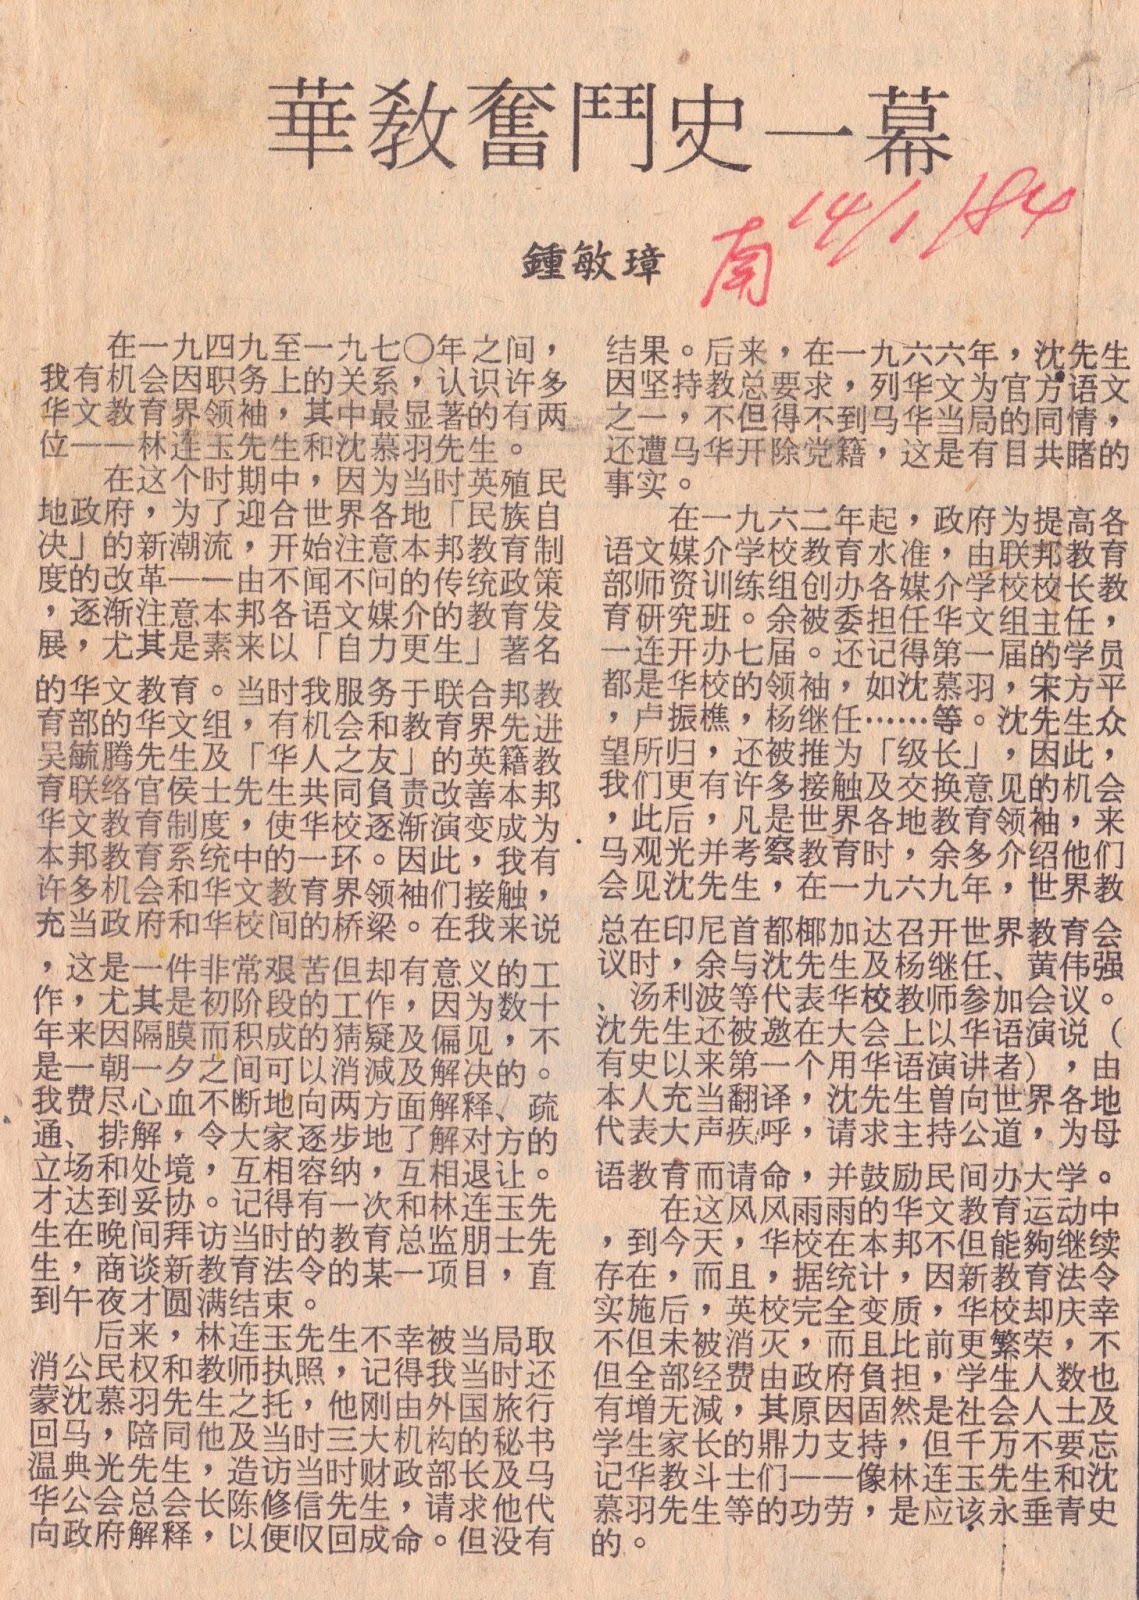 華教奮鬥史一幕
鍾敏璋
南 14/1/84
在一九四九至一九七〇年之间，
我有机会因职务上的关系，认识许多
华文教育界领袖，其中最显著的有两
位——林连玉先生和沈慕羽先生。
在这个时期中，因为当时英殖民
地政府，为了迎合世界各地「民族自
决」的新潮流，开始注意本邦教育制
度的改革——由不闻不问的传统政策
，逐渐注意本邦各语文媒介的教育发
展，尤其是素来以「自力更生」著名
的华文教育。当时我服务于联合邦教
育部的华文组，有机会和教育界先进
吴毓腾先生及「华人之友」的英籍教
育联络官侯士先生共同負责改善本邦
华文教育制度，使华校逐渐演变成为
本邦教育系统中的一环。因此，我有
许多机会和华文教育界领袖们接触，
充当政府和华校间的桥梁。在我来说
，这是一件非常艰苦但却有意义的工
作，尤其是初阶段的工作，因为数十
年来因隔膜而积成的猜疑及偏见，不
是一朝一夕之间可以消减及解决的。
我费尽心血，不断地向两方面解释、疏
通、排解，令大家逐步地了解对方的
立场和处境，互相容纳，互相退让。
才达到妥协。记得有一次和林连玉先
生在晚间拜访当时的教育总监朋士先
生，商谈新教育法令的某一项目，直
到午夜才圆满结束。
后来，林连玉先生不幸被当局取
消公民权和教师执照，记得我当时还
蒙沈慕羽先生之托，他刚由外国旅行
回马，陪同他及当时三大机构的秘书
温典光先生，造访当时财政部长及马
华公会总会长陈修信先生，请求他代
向政府解释，以便收回成命。但没有
结果。后来，在一九六六年，沈先生
因坚持教总要求，列华文为官方语文
之一，不但得不到马华当局的同情，
还遭马华开除党籍，这是有目共睹的
事实。
在一九六二年起，政府为提高各
语文媒介学校教育水准，由联邦教育
部师资训练组创办各媒介学校校长教
育研究班。余被委担任华文组主任，
一连开办七届。还记得第一届的学员
都是华校的领袖，如沈慕羽，宋方平
，卢振樵，杨继任……等。沈先生众
望所归，还被推为「级长」，因此，
我们更有许多接触及交换意见的机会
，此后，凡是世界各地教育领袖，来
马观光并考察教育时，余多介绍他们
会见沈先生，在一九六九年，世界教
总在印尼首都椰加达召开世界教育会
议时，余与沈先生及杨继任、黄伟强
、汤利波等代表华校教师参加会议。
沈先生还被邀在大会上以华语演说（
有史以来第一个用华语演讲者），由
本人充当翻译，沈先生曾向世界各地
代表大声疾呼，请求主持公道，为母
语教育而请命，并鼓励民间办大学。
在这风风雨雨的华文教育运动中
，到今天，华校在本邦不但能夠继续
存在，而且，据统计，因新教育法令
实施后，英校完全变质，华校却庆幸
不但未被消灭，而且比前更繁荣，不
但全部经费由政府負担，学生人数也
有增无减，其原因固然是社会人士及
学生家长的鼎力支持，但千万不要忘
记华教斗士们——像林连玉先生和沈
慕羽先生等的功劳，是应该永垂青史
的。